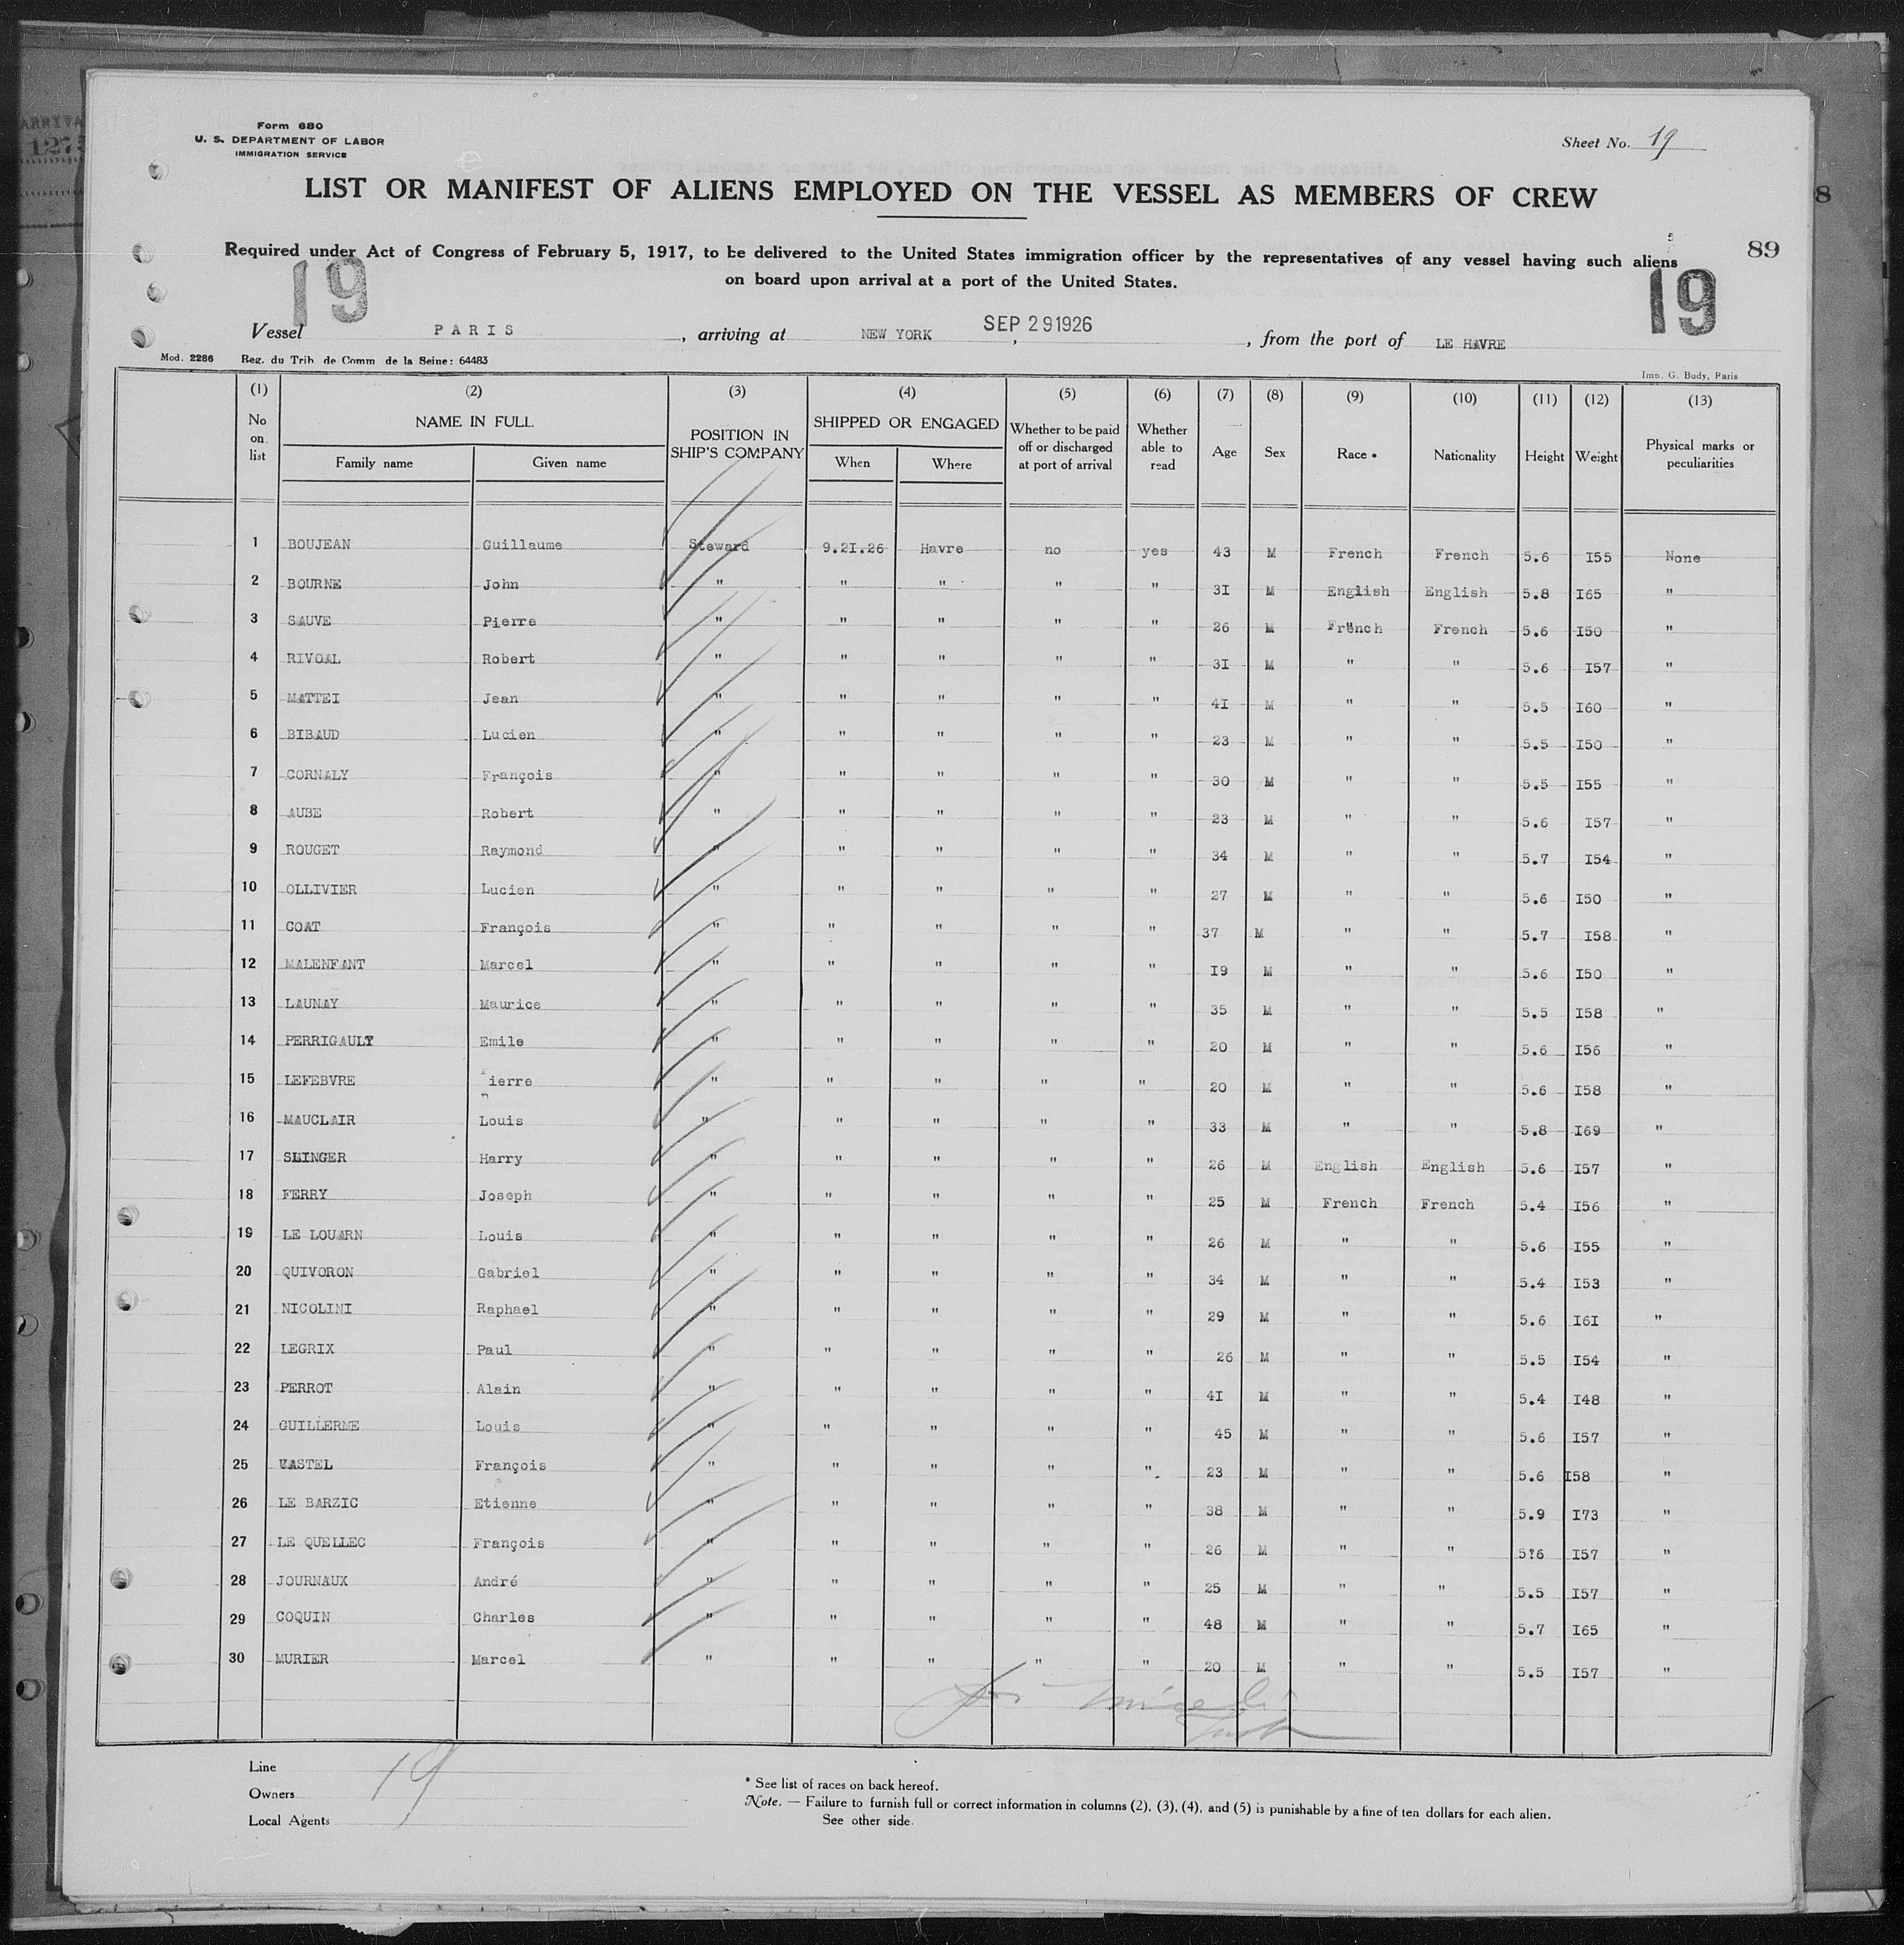 Form 680
U. S. DEPARTMENT OF LABOR
IMMIGRATION SERVICE
Sheet No. 19
LIST OR MANIFEST OF ALIENS EMPLOYED ON THE VESSEL AS MEMBERS OF CREW
Required under Act of Congress of February 5, 1917, to be delivered to the United States immigration officer by the representatives of any vessel having such aliens
on board upon arrival at a port of the United States.
89
19
19
Vessel PARIS, arriving at NEW YORK SEP 291926, from the port of LE HAVRE
Mod. 2286 Reg. du Trib. de Comm de la Seine: 64483
Imp. G. Budy, Paris
(1) (2) (3) (4) (5) (6) (7) (8) (9) (10) (11) (12) (13)
No on list NAME IN FULL POSITION IN SHIP'S COMPANY SHIPPED OR ENGAGED Whether to be paid off or discharged at port of arrival Whether able to read Age Sex Race * Nationality Height Weight Physical marks or peculiarities
Family name Given name When Where
1 BOUJEAN Guillaume Steward 9.2I.26 Havre no yes 43 M French French 5.6 I55 None
2 BOURNE John " " " " " 3I M English English 5.8 I65 "
3 SAUVE Pierre " " " " " 26 M French French 5.6 I50 "
4 RIVOAL Robert " " " " " 3I M " " 5.6 I57 "
5 MATTEI Jean " " " " " 4I M " " 5.5 I60 "
6 BIBAUD Lucien " " " " " 23 M " " 5.5 I50 "
7 CORNALY François " " " " " 30 M " " 5.5 I55 "
8 AUBE Robert " " " " " 23 M " " 5.6 I57 "
9 ROUGET Raymond " " " " " 34 M " " 5.7 I54 "
10 OLLIVIER Lucien " " " " " 27 M " " 5.6 I50 "
11 COAT François " " " " " 37 M " " 5.7 I58 "
12 MALENFANT Marcel " " " " " I9 M " " 5.6 I50 "
13 LAUNAY Maurice " " " " " 35 M " " 5.5 I58 "
14 PERRIGAULT Emile " " " " " 20 M " " 5.6 I56 "
15 LEFEBVRE Pierre " " " " " 20 M " " 5.6 I58 "
16 MAUCLAIR Louis " " " " " 33 M " " 5.8 I69 "
17 SLINGER Harry " " " " " 26 M English English 5.6 I57 "
18 FERRY Joseph " " " " " 25 M French French 5.4 I56 "
19 LE LOUARN Louis " " " " " 26 M " " 5.6 I55 "
20 QUIVORON Gabriel " " " " " 34 M " " 5.4 I53 "
21 NICOLINI Raphael " " " " " 29 M " " 5.6 I6I "
22 LEGRIX Paul " " " " " 26 M " " 5.5 I54 "
23 PERROT Alain " " " " " 4I M " " 5.4 I48 "
24 GUILLERME Louis " " " " " 45 M " " 5.6 I57 "
25 VASTEL François " " " " " 23 M " " 5.6 I58 "
26 LE BARZIC Etienne " " " " " 38 M " " 5.9 I73 "
27 LE QUELLEC François " " " " " 26 M " " 5?6 I57 "
28 JOURNAUX André " " " " " 25 M " " 5.5 I57 "
29 COQUIN Charles " " " " " 48 M " " 5.7 I65 "
30 MURIER Marcel " " " " " 20 M " " 5.5 I57 "
Line
Owners
Local Agents
19
* See list of races on back hereof.
Note. — Failure to furnish full or correct information in columns (2), (3), (4), and (5) is punishable by a fine of ten dollars for each alien.
See other side.